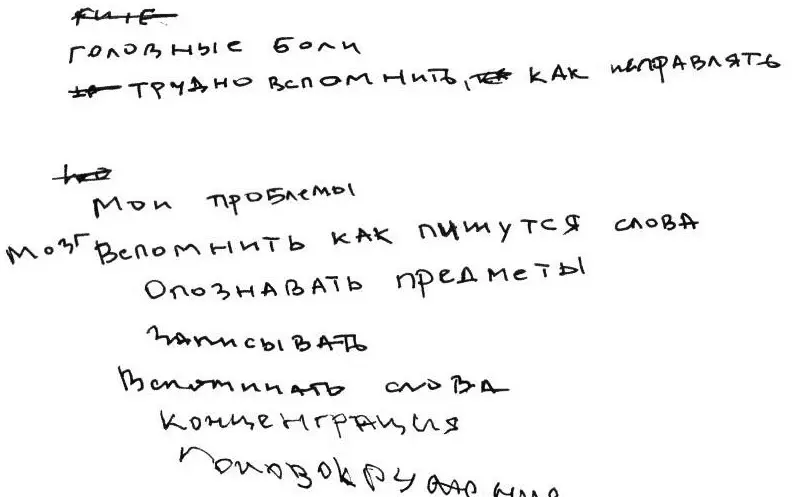 головные боли
трудно вспомнить, как направлять
Мои проблемы
мозг Вспомнить как пишутся слова
Опознавать предметы
Записывать
Вспоминать слова
Концентрация